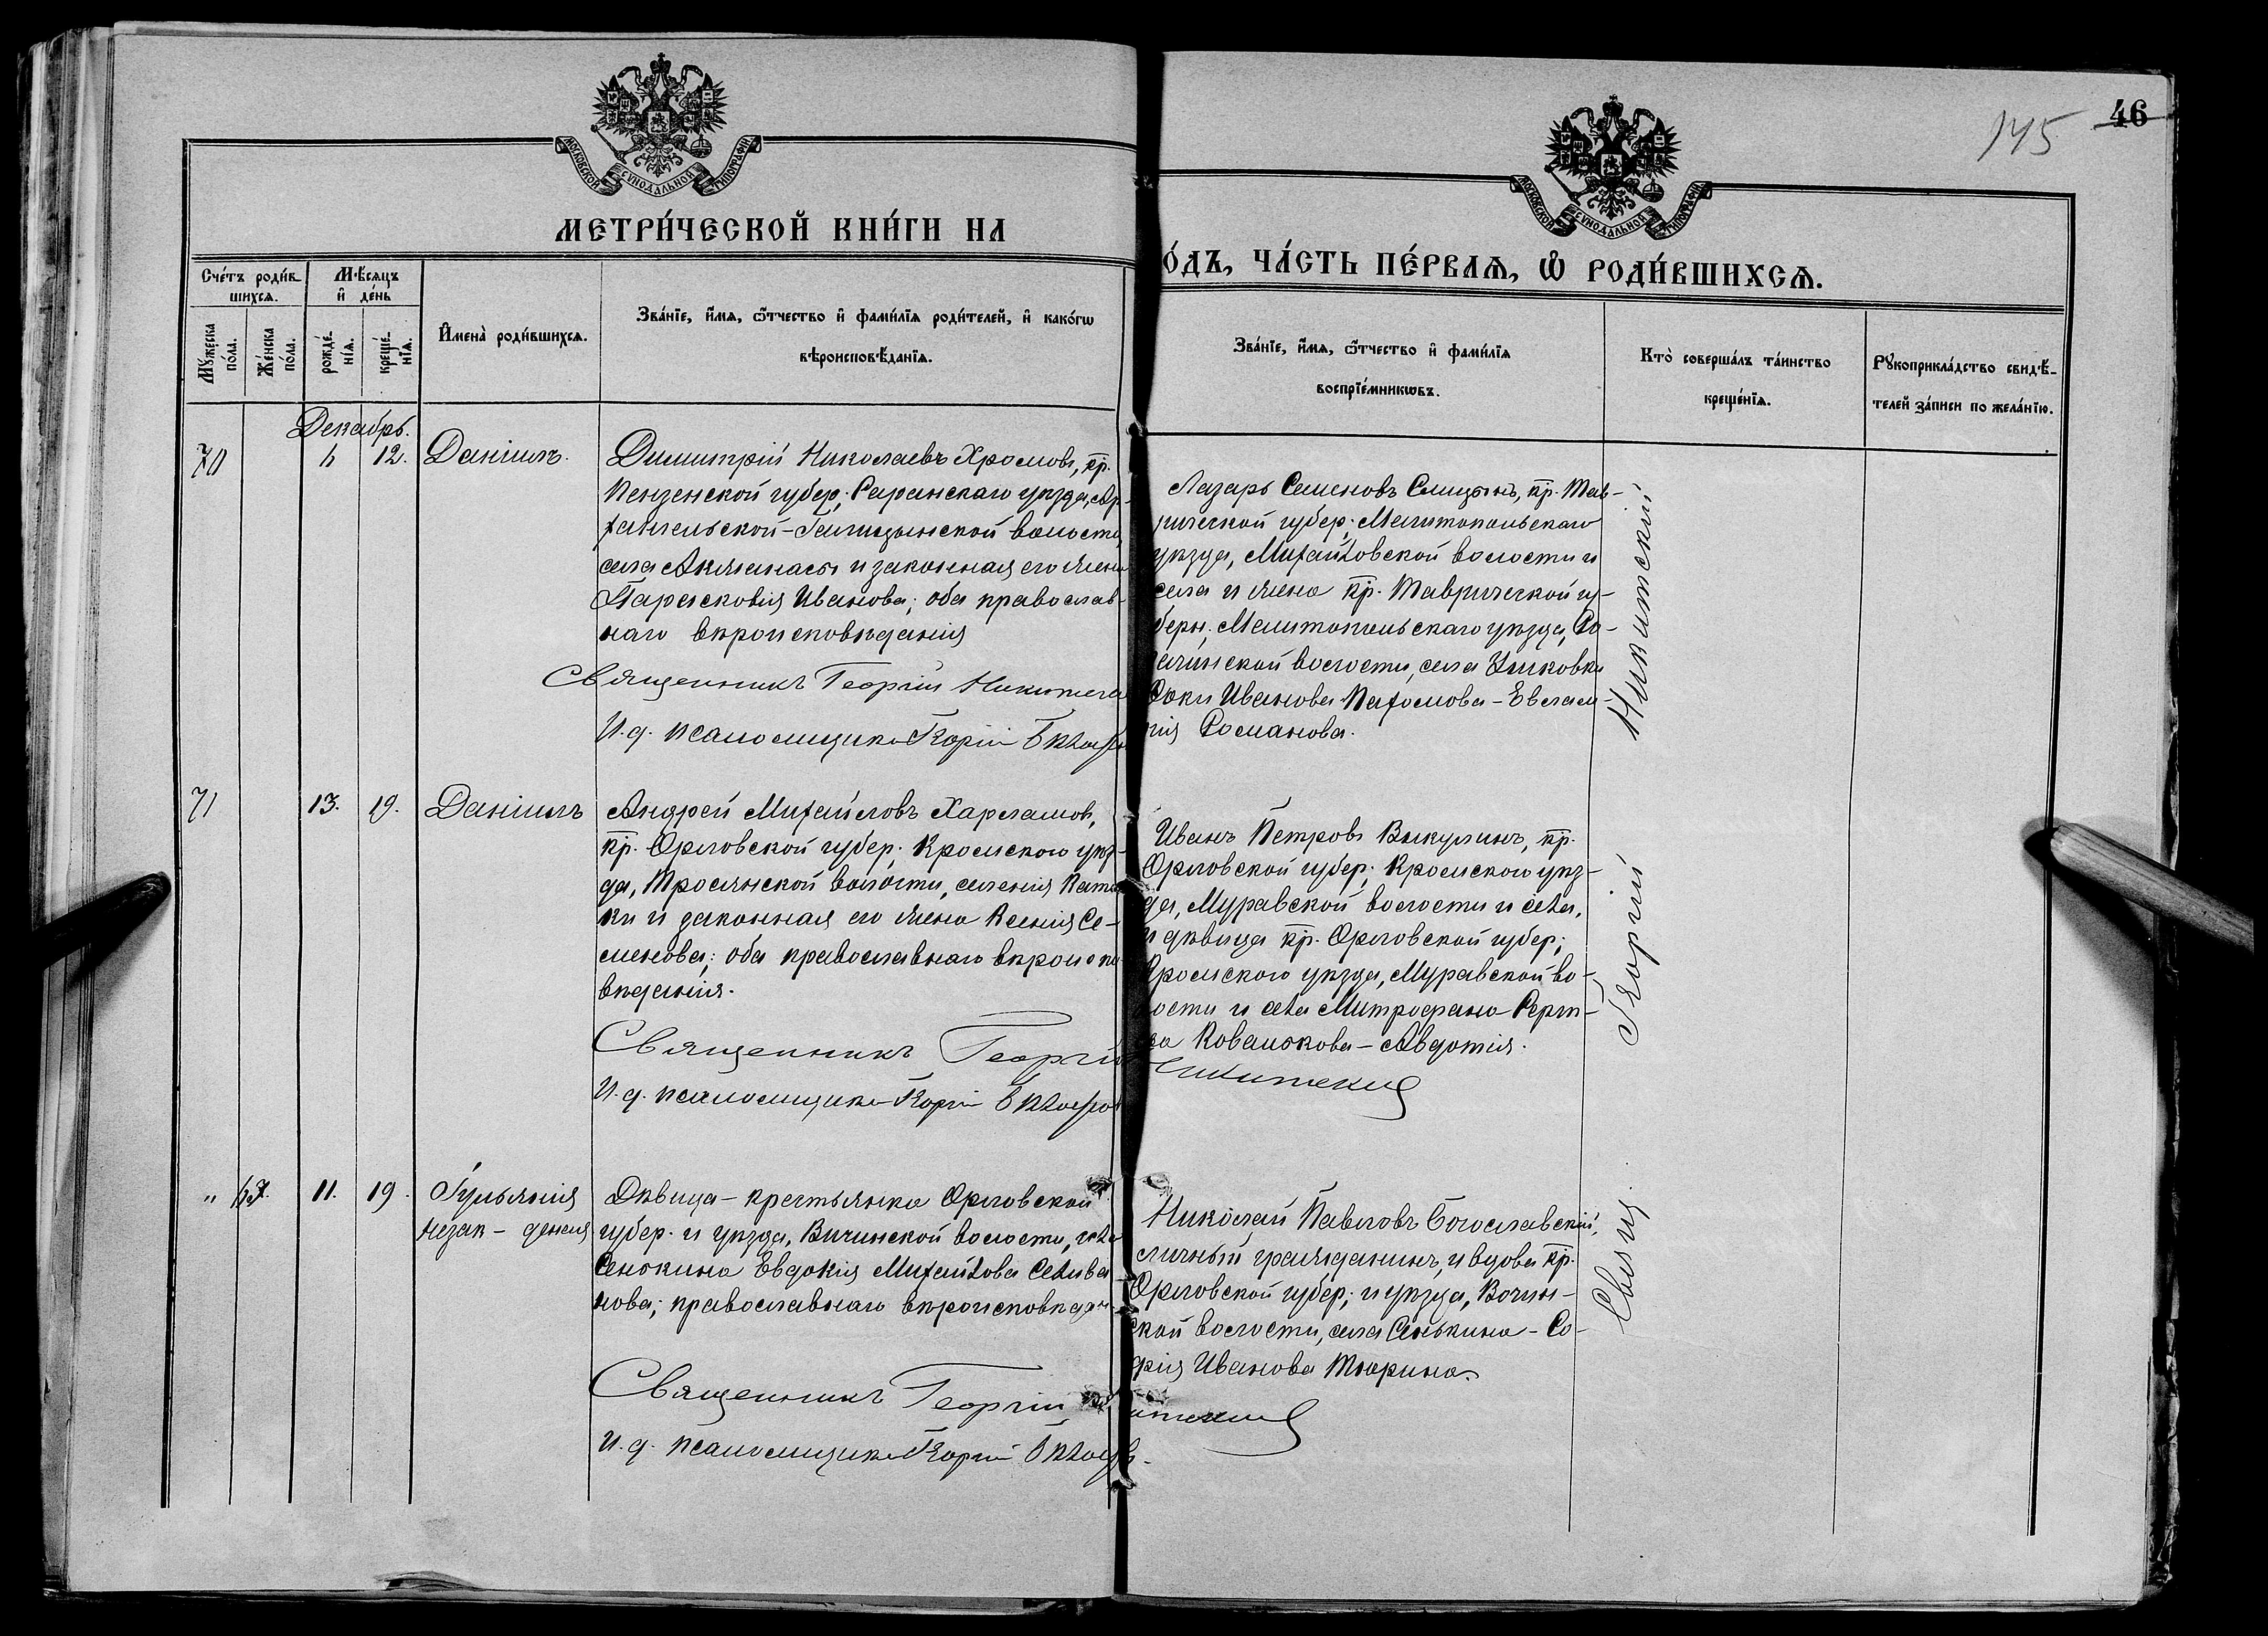 145 46
МОСКОВСКОЙ СѴНОДАЛЬНОЙ ТИПОГРАФІИ
МОСКОВСКОЙ СѴНОДАЛЬНОЙ ТИПОГРАФІИ
МЕТРИ́ЧЕСКОЙ КНИ́ГИ НА
О́ДЪ, ЧА́СТЬ ПЕ́РВАѦ, Ѡ҆ РОДИ́ВШИХСѦ.
Сче́тъ роди́в-
шихсѧ.
Мꙋ́жеска
по́ла.
Же́нска
по́ла.
Мѣ́сяцъ
и҆ де́нь
рожде́-
нїѧ.
креще́-
нїѧ.
И҆мена̀ роди́вшихсѧ.
Зва́нїе, и҆́мѧ, ѻ҆́тчество и҆ фами́лїѧ роди́телей, и҆ како́гѡ
вѣроисповѣ́данїѧ.
Зва́нїе, и҆́мѧ, ѻ҆́тчество и҆ фами́лїѧ
воспрїе́мникѡвъ.
Кто̀ соверша́лъ та́инство
креще́нїѧ.
Рꙋкоприкла́дство свидѣ́-
телей за́писи по жела́нїю.
Декабрь.
70
12.
Даніилъ.
Димитрій Николаевъ Хромовъ, кр.
Пензенской губер; Саранскаго уѣзда, Ар-
хангельской-Голицынской волости
села и законная его жена
Парасковія Иванова; оба православ-
наго вѣроисповѣданія
Священникъ Георгій Никитскі
И.д. псаломщика Георгій
Лазарь Семеновъ кр. Тав-
рической губер; Мелитопольскаго
уѣзда, Михайловской волости и
села и жена кр. Таврической гу-
берн; Мелитопольскаго уѣзда, Ро-
гачинской волости, села Ушковки
Фоки Иванова Пахомова - Евлам-
пія Романова.
71
13.
19.
Даніилъ
Андрей Михайловъ Харламов,
кр. Орловской губер; Кромского уѣз-
да, Тросянской волости, селенія
ки и законная его жена Ксенія Се-
менова; оба православнаго вѣроиспо
вѣданія.
Священникъ Георгій Никитскій
И.д. псаломщика Георгій
Иванъ Петровъ Викулинъ, кр.
Орловской губер; Кромского уѣз-
да, Муравской волости и села,
и дѣвица кр. Орловской губер;
Кромского уѣзда, Муравской во-
лости и села Митрофана
Ковалькова - Авдотія.
" 67.
11.
19.
Гульянія
незак-
Дѣвица - крестьянка Орловской
губер. и уѣзда, села
Сенькина Евдокія Михайлова Селива
нова; православнаго вѣроисповѣдан
Священникъ Георгій
И.д. псаломщика Георгій
Николай Павловъ Богославскій,
личный гражданинъ, и вдова кр.
Орловской губер; и уѣзда,
ской волости, села Сенькина - Со-
фія Иванова Тюрина.
Никитский
Георгій
Священ.